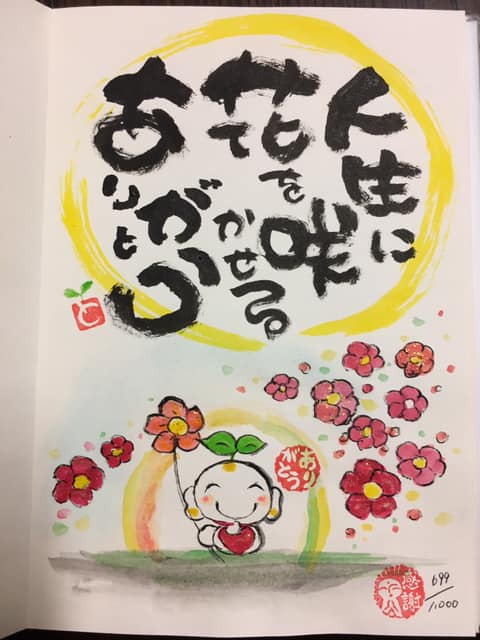 人生に
花を
咲かせる
ありがとう
と
ありがとう
感謝
699/1000